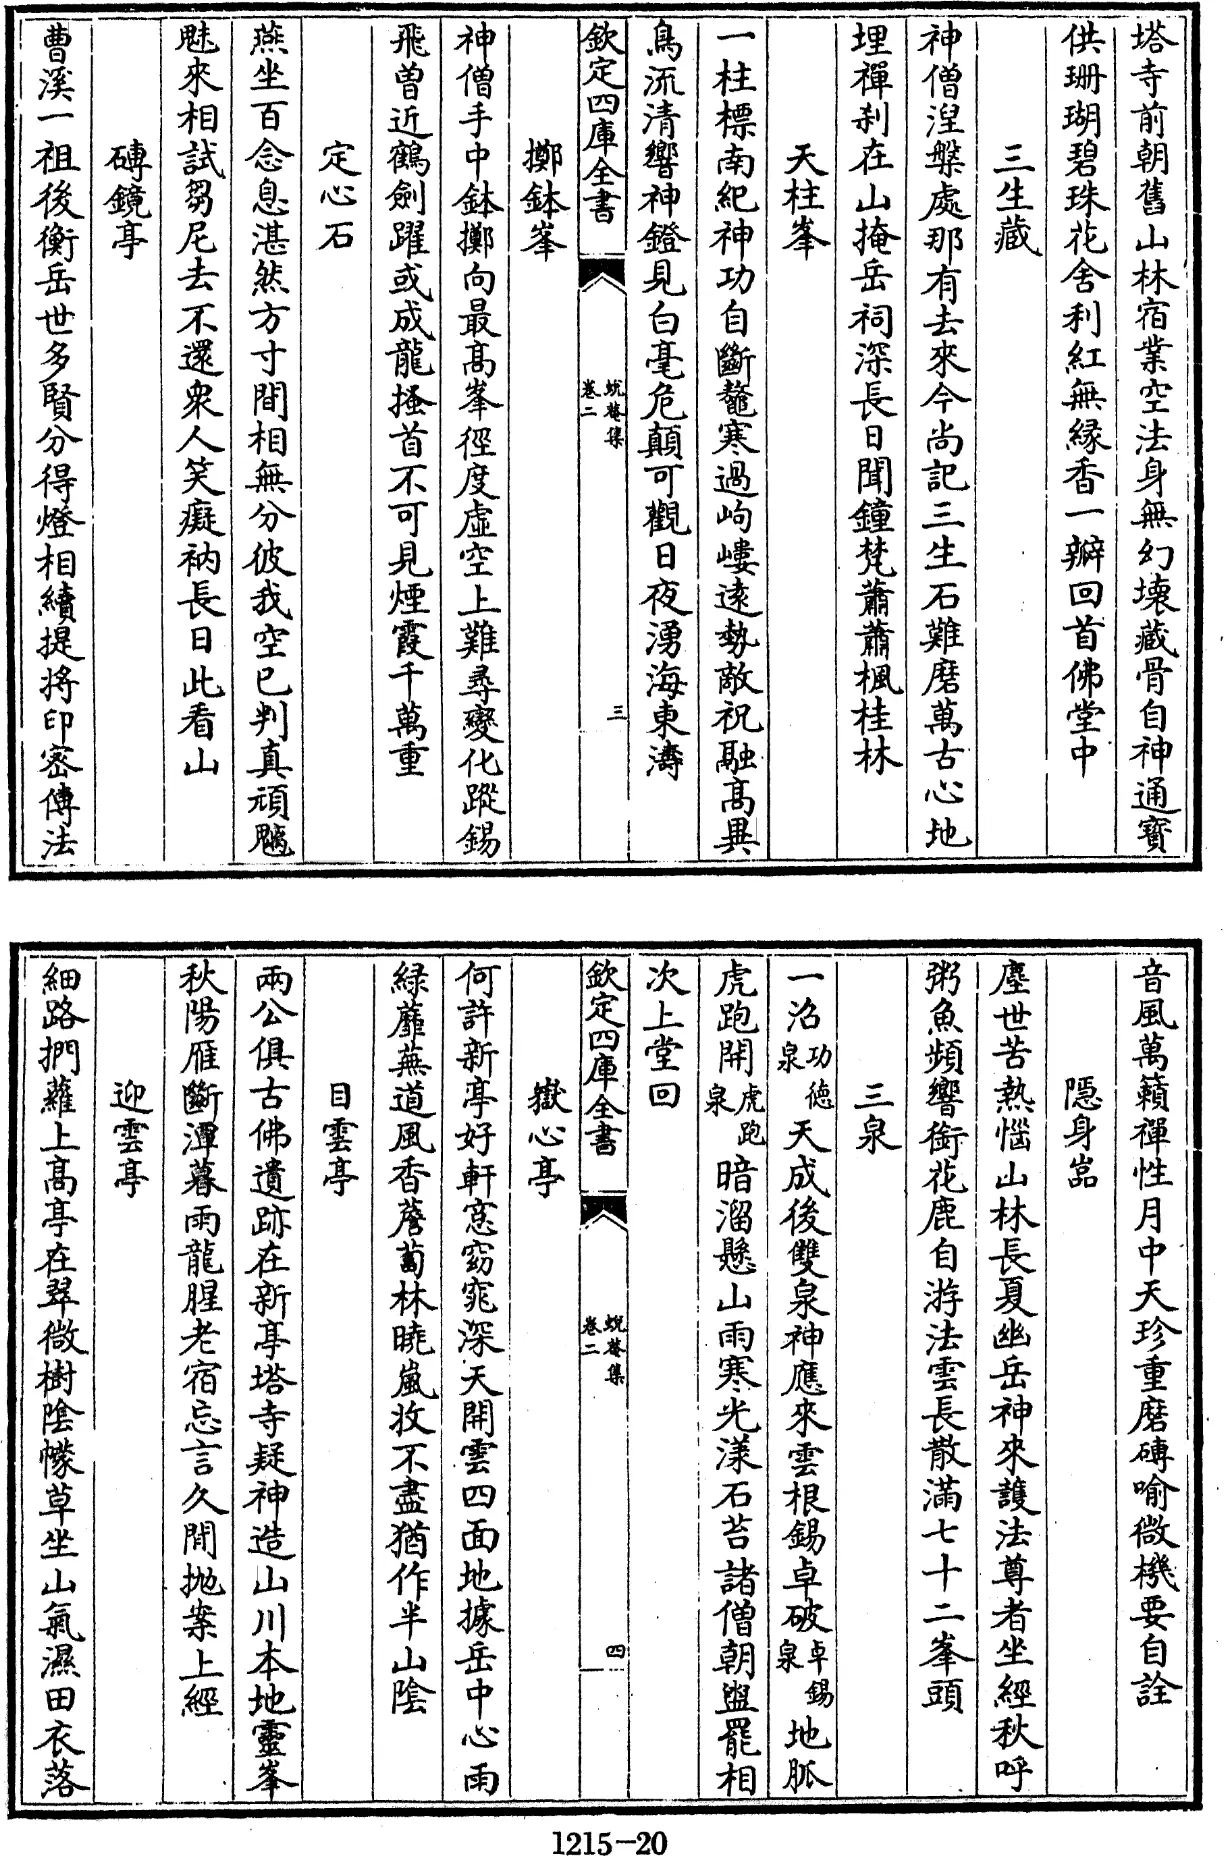 塔寺前朝舊山林宿業空法身無幻壊藏骨自神通寳
供珊瑚碧珠花舍利紅無緣香一瓣回首佛堂中
三生藏
神僧湼槃處那有去來今尚記三生石難磨萬古心地
埋禪刹在山掩岳祠深長日聞鐘梵蕭蕭楓桂林
天柱峯
一柱標南紀神功自斷鼇寒過岣嶁逺勢敵祝融髙異
鳥流清響神鐙見白毫危顛可觀日夜湧海東濤
欽定四庫全書
蛻菴集
卷二
三
擲鉢峯
神僧手中鉢擲向最髙峯徑度虛空上難尋變化蹤錫
飛曽近鶴劍躍或成龍搔首不可見煙霞千萬重
定心石
燕坐百念息湛然方寸間相無分彼我空已判真頑魑
魅來相試芻尼去不還衆人笑癡衲長日此看山
磚鏡亭
曹溪一祖後衡岳世多賢分得燈相續提將印密傳法
音風萬籟禪性月中天珍重磨磚喻微機要自詮
隠身嵓
塵世苦熱惱山林長夏幽岳神來護法尊者坐經秋呼
粥魚頻響銜花鹿自游法雲長散滿七十二峯頭
三泉
一沼功德泉天成後雙泉神應來雲根錫卓破卓錫泉地脈
虎跑開虎跑泉暗溜懸山雨寒光漾石苔諸僧朝盥罷相
次上堂回
欽定四庫全書
蛻菴集
卷二
四
嶽心亭
何許新亭好軒窓窈窕深天開雲四面地據岳中心雨
緑蘼蕪道風香薝蔔林曉嵐收不盡猶作半山陰
目雲亭
兩公俱古佛遺跡在新亭塔寺疑神造山川本地靈峯
秋陽雁斷潭暮雨龍腥老宿忘言久閒抛案上經
迎雲亭
細路捫蘿上髙亭在翠微樹陰幪草坐山氣濕田衣落
1215-20